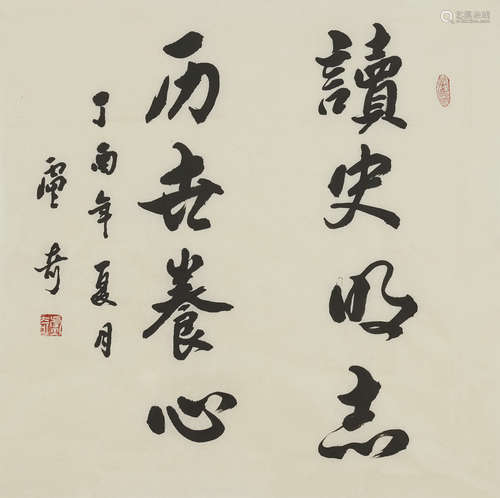 讀史明志
历世養心
丁酉年夏月
盧奇